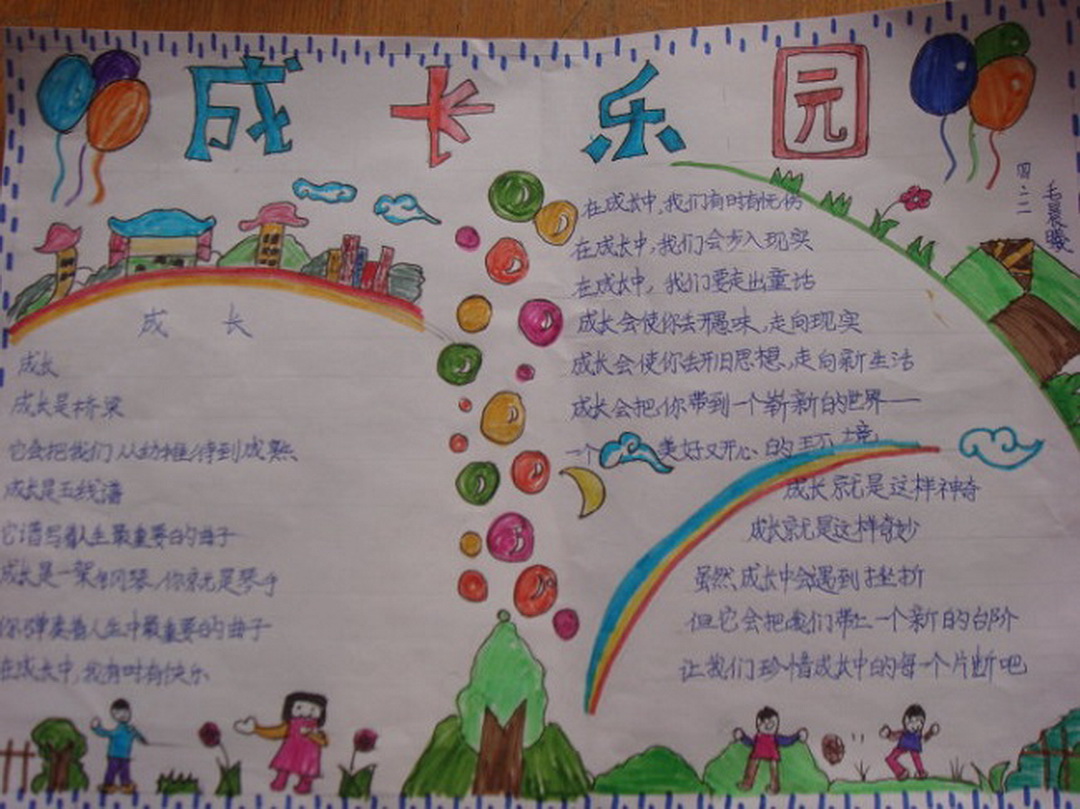 成长乐园
四.二
成 长
成长
成长是桥梁
它会把我们从幼稚待到成熟
成长是五线谱
它谱写着人生最重要的曲子
成长是一架钢琴,你就是琴手
你弹奏着人生中最重要的曲子
在成长中,我有时有快乐
在成长中,我们有时有忧伤
在成长中,我们会步入现实
在成长中,我们要走出童话
成长会使你去开愚昧,走向现实
成长会使你去开旧思想,走向新生活
成长会把你带到一个崭新的世界——
一个美好又开心的环境
成长就是这样神奇
成长就是这样奇妙
虽然成长中会遇到挫折
但它会把我们带上一个新的台阶
让我们珍惜成长中的每一个片断吧